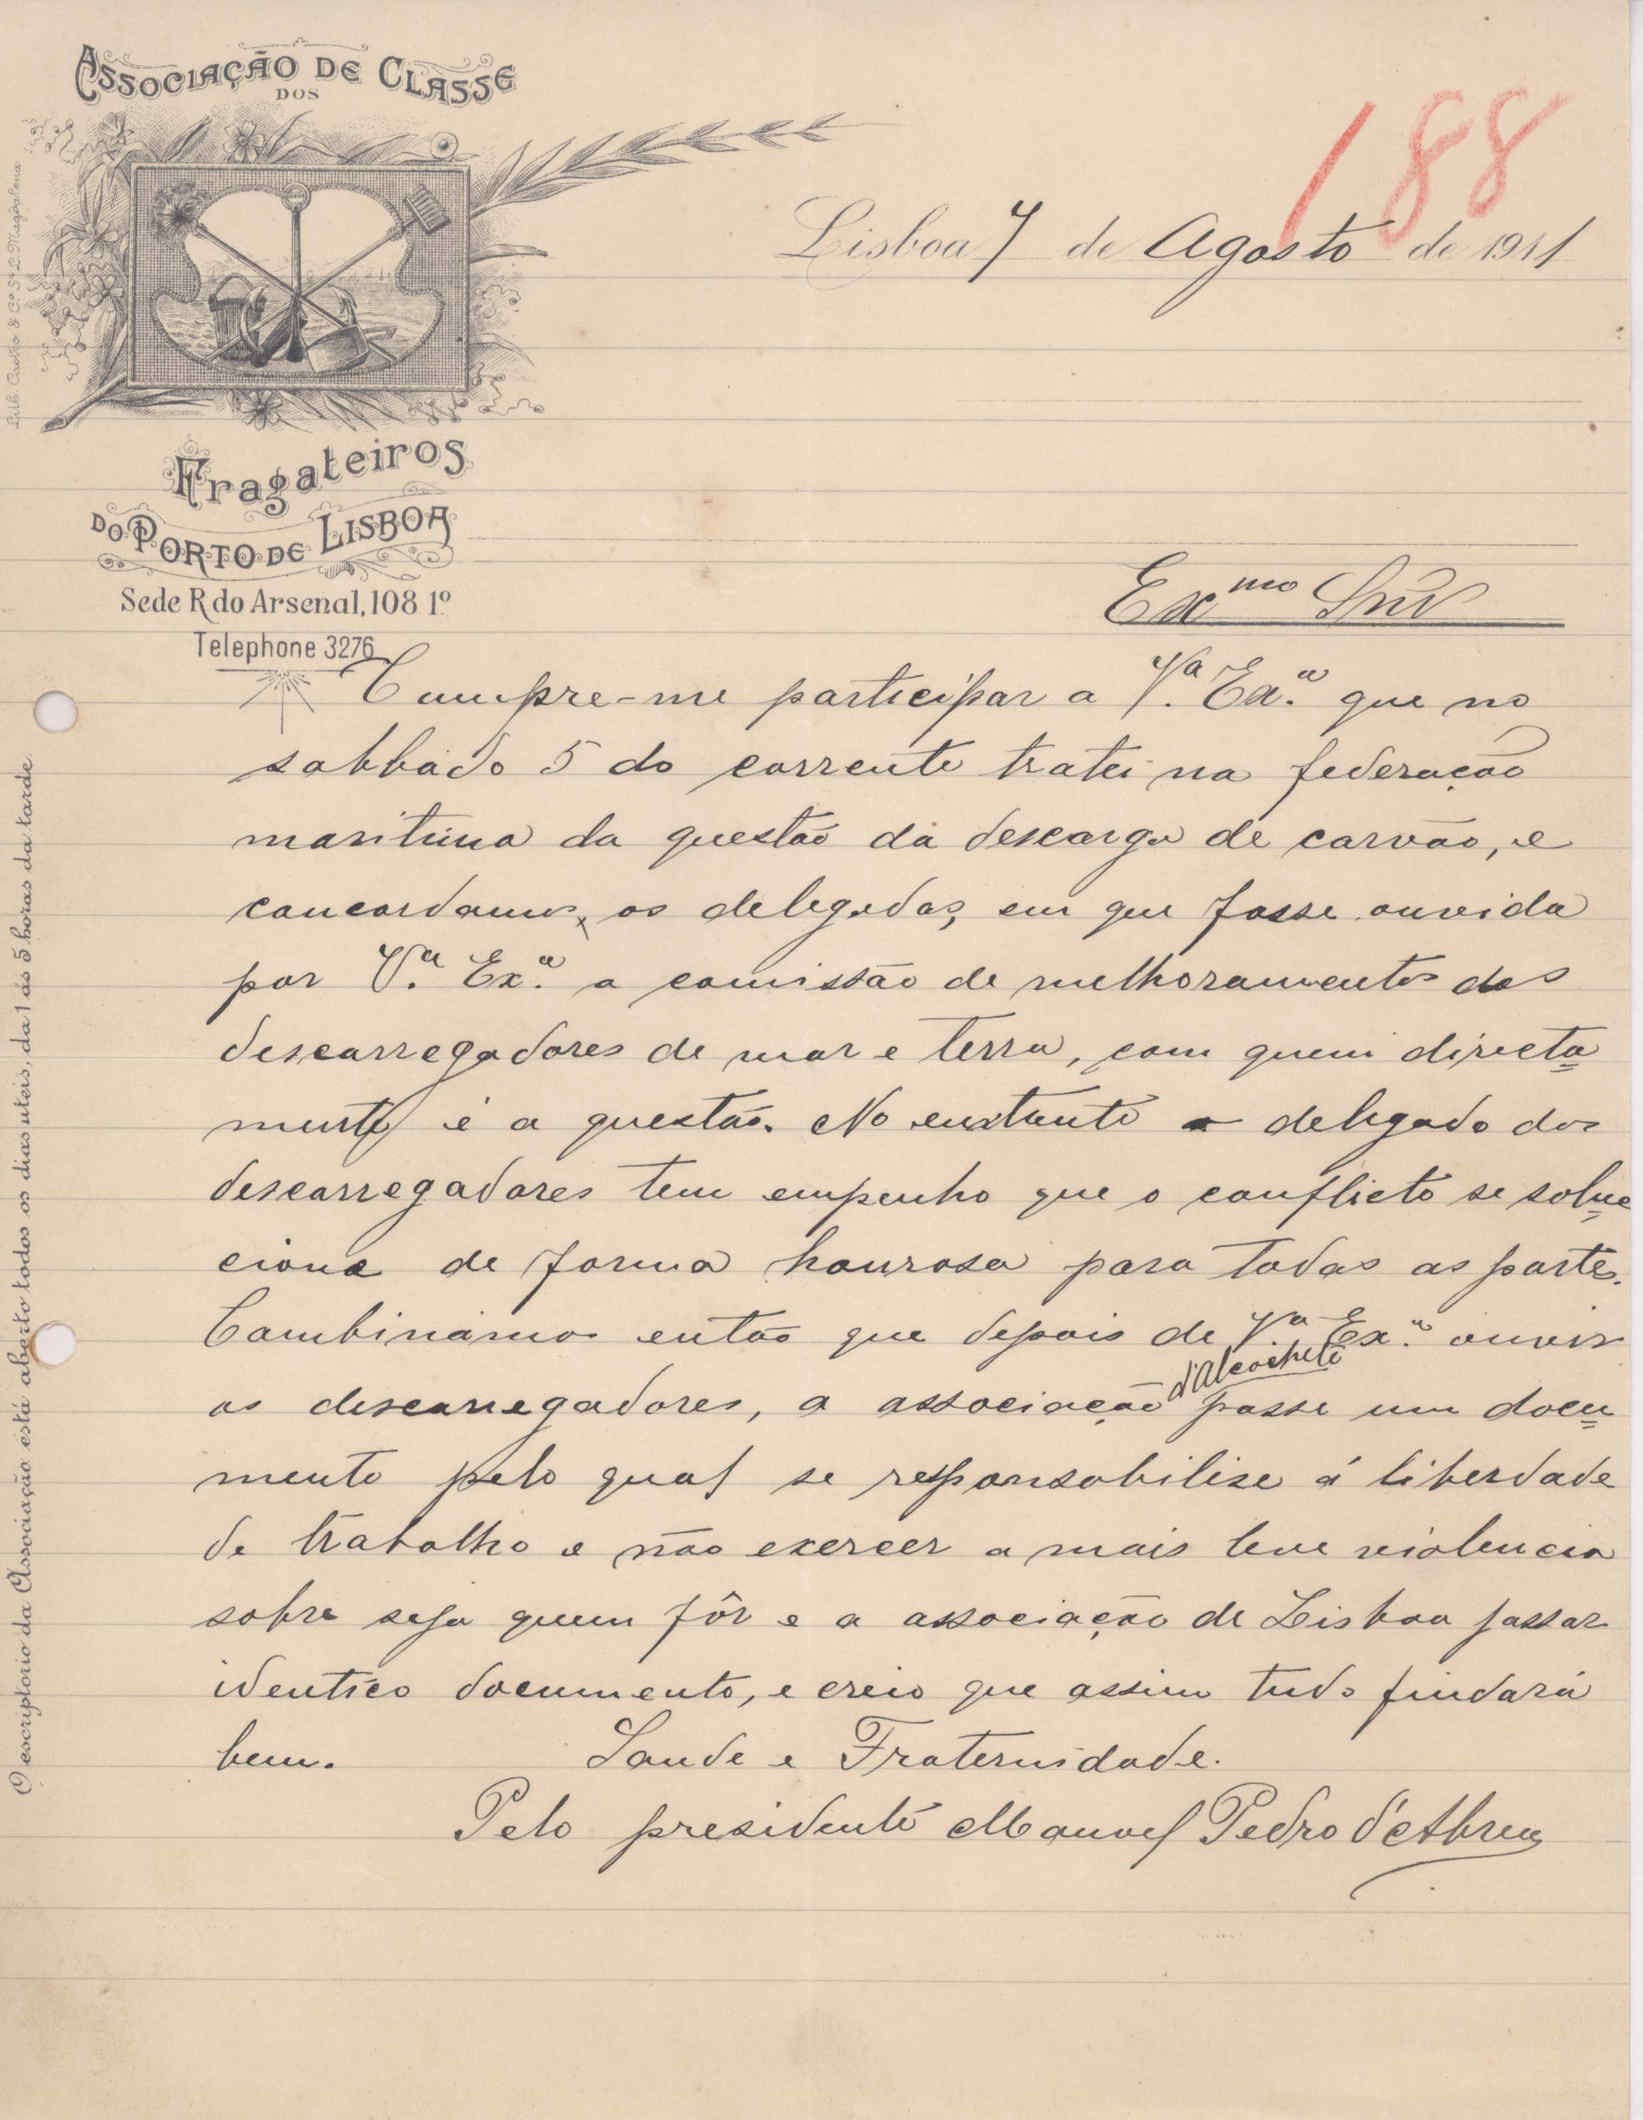 Associação de Classe
dos
188
Lisboa 7 de Agosto de 1911
Fragateiros
do Porto de Lisboa
Sede R do Arsenal, 108 1º
Telephone 3276
Exmo Snr
Cumpre-me participar a V.ª Ex.ª que no
sabbado 5 do corrente tratei na federação
maritima da questão da descarga de carvão, e
concordamos, os delegados, em que fosse ouvida
por V.ª Ex.ª a comissão de melhoramentos dos
descarregadores de mar e terra, com quem directa=
mente é a questão. No emtanto o delegado dos
descarregadores tem empenho que o conflicto se solu=
cione de forma honrosa para todas as partes.
Combinámos então que depois de V.ª Ex.ª ouvir
os descarregadores, a associação d'Alcochete passe um docu=
mento pelo qual se responsabilise á liberdade
de trabalho e não exercer a mais leve violencia
sobre seja quem fôr e a associação de Lisboa passar
identico documento, e creio que assim tudo findará
bem. Saude e Fraternidade.
Pelo presidente Manoel Pedro d'Abreu
O escriptorio da Associação está aberto todos os dias uteis, da 1 ás 5 horas da tarde